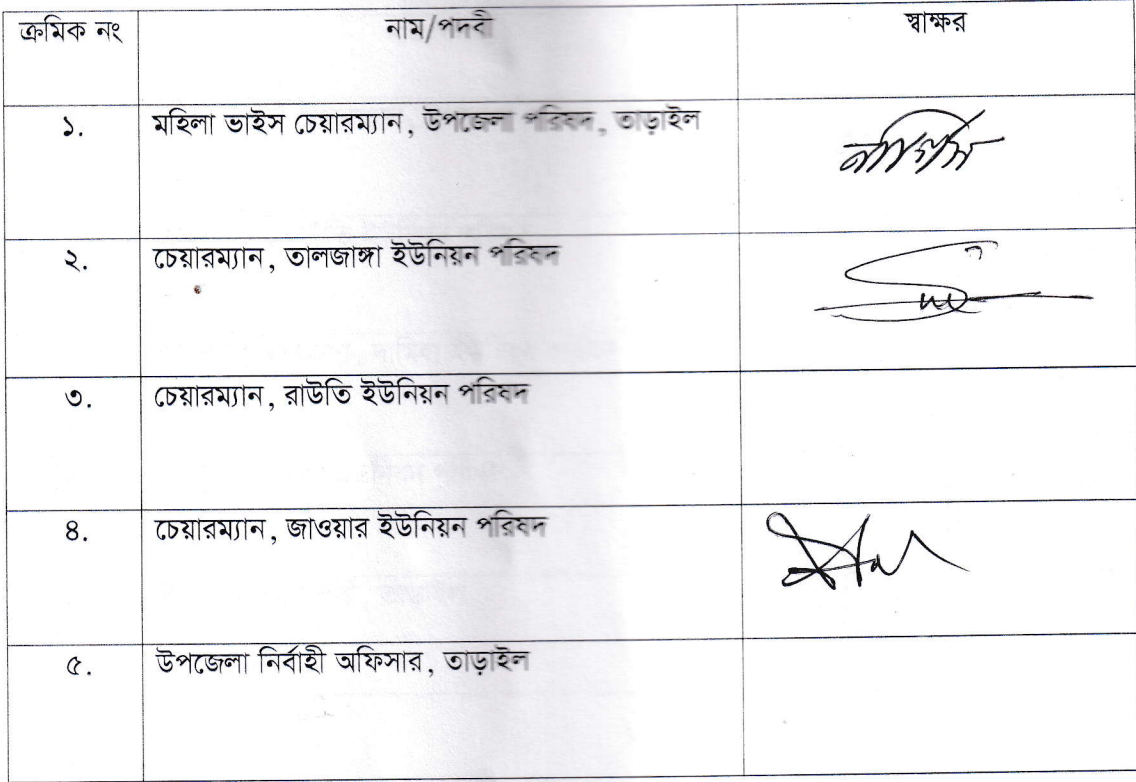 ক্রমিক নং নাম/পদবী স্বাক্ষর
১. মহিলা ভাইস চেয়ারম্যান, উপজেলা পরিষদ, তাড়াইল
২. চেয়ারম্যান, তালজাঙ্গা ইউনিয়ন পরিষদ
৩. চেয়ারম্যান, রাউতি ইউনিয়ন পরিষদ
৪. চেয়ারম্যান, জাওয়ার ইউনিয়ন পরিষদ
৫. উপজেলা নির্বাহী অফিসার, তাড়াইল